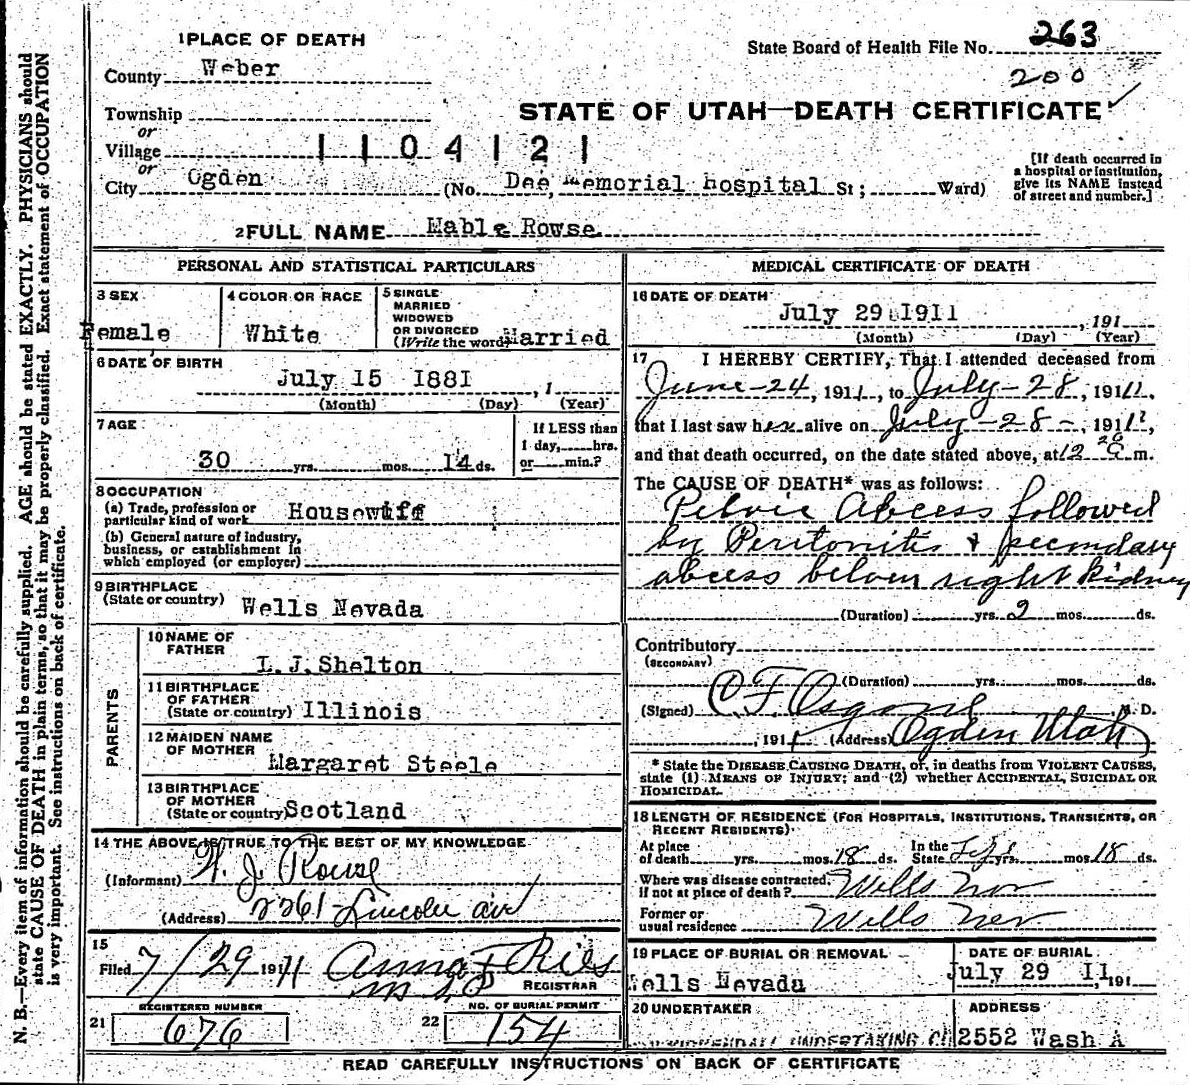 1 PLACE OF DEATH
County Weber
State Board of Health File No. 263
200
Township
or
Village
or
1104121
STATE OF UTAH—DEATH CERTIFICATE
City Ogden (No. Dee Memorial hospital St; Ward)
[If death occurred in
a hospital or institution,
give its NAME instead
of street and number.]
2 FULL NAME Mable Rowse
PERSONAL AND STATISTICAL PARTICULARS
3 SEX
Female
4 COLOR OR RACE
White
5 SINGLE
MARRIED
WIDOWED
OR DIVORCED
(Write the word) Married
6 DATE OF BIRTH
July 15 1881, 1
(Month) (Day) (Year)
7 AGE
30 yrs. mos. 14 ds.
If LESS than
1 day, hrs.
or min.?
8 OCCUPATION
(a) Trade, profession or
particular kind of work Housewiff
(b) General nature of industry,
business, or establishment in
which employed (or employer)
9 BIRTHPLACE
(State or country) Wells Nevada
PARENTS
10 NAME OF
FATHER
L.J.Shelton
11 BIRTHPLACE
OF FATHER
(State or country) Illinois
12 MAIDEN NAME
OF MOTHER
Margaret Steele
13 BIRTHPLACE
OF MOTHER
(State or country) Scotland
14 THE ABOVE IS TRUE TO THE BEST OF MY KNOWLEDGE
(Informant) W. J. Rouse
(Address) 2261 Lincoln av
15
Filed 7/29 1911 Anna F Ries
REGISTRAR
REGISTERED NUMBER
21 676
NO. OF BURIAL PERMIT
22 154
MEDICAL CERTIFICATE OF DEATH
16 DATE OF DEATH
July 29 1911, 191
(Month) (Day) (Year)
17 I HEREBY CERTIFY, That I attended deceased from
June-24, 1911, to July-28, 1911,
that I last saw her alive on July-28-, 1911,
and that death occurred, on the date stated above, at 12 20 a m.
The CAUSE OF DEATH* was as follows:
Pelvic Abcess followed
by Peritonitis & secondary
abcess below right kidney
(Duration) yrs. 2 mos. ds.
Contributory
(SECONDARY)
(Duration) yrs. mos. ds.
(Signed) C. F. Osgood, M. D.
, 1911 (Address) Ogden Utah
* State the DISEASE CAUSING DEATH, or, in deaths from VIOLENT CAUSES,
state (1) MEANS OF INJURY; and (2) whether ACCIDENTAL, SUICIDAL OR
HOMICIDAL.
18 LENGTH OF RESIDENCE (FOR HOSPITALS, INSTITUTIONS, TRANSIENTS, OR
RECENT RESIDENTS)
At place
of death yrs. mos. 18 ds.
In the
State yrs. mos. 18 ds.
Where was disease contracted,
if not at place of death? Wells Nev
Former or
usual residence Wells Nev
19 PLACE OF BURIAL OR REMOVAL
Wells Nevada
DATE OF BURIAL
July 29 11, 191
20 UNDERTAKER
UNDERTAKING CO
ADDRESS
2552 Wash A
READ CAREFULLY INSTRUCTIONS ON BACK OF CERTIFICATE
N. B.—Every item of information should be carefully supplied. AGE should be stated EXACTLY. PHYSICIANS should
state CAUSE OF DEATH in plain terms, so that it may be properly classified. Exact statement of OCCUPATION
is very important. See instructions on back of certificate.